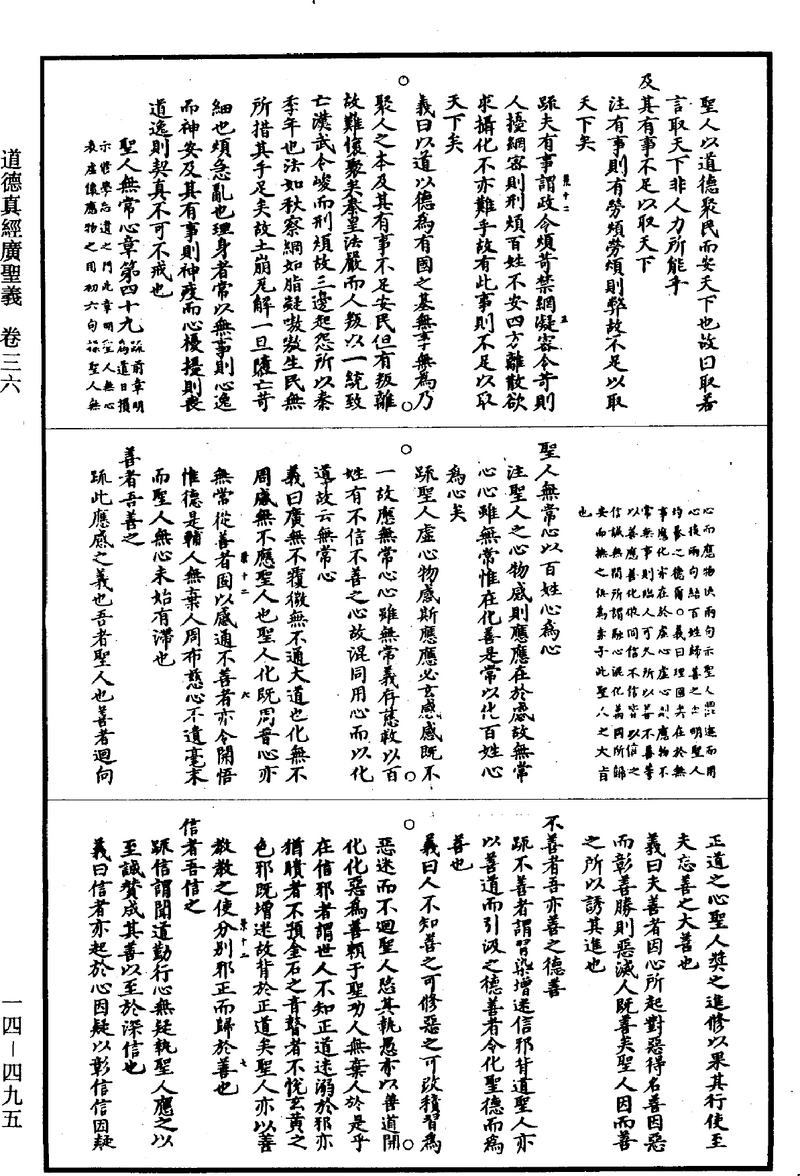 道德真經廣聖義　卷三六
聖人以道德聚民而安天下也故曰取若
言取天下非人力所能乎
及其有事不足以取天下
注有事則有勞煩勞煩則弊故不足以取
天下矣
疏夫有事謂政令煩苛禁網凝密令苛則
人擾網密則刑煩百姓不安四方離散欲
求攝化不亦難乎故有此事則不足以取
天下矣
義曰以道以德為有國之基無事無為乃
聚人之本及其有事不足安民但有叛離
故難懷聚矣秦皇法嚴而人叛以一統致
亡漢武令峻而刑煩故三邊起怨所以秦
季年也法如秋荼網如脂凝嗷嗷生民無
所措其手足矣故土崩瓦解一旦隳亡苛
細也煩急亂也理身者常以無事則心逸
而神安及其有事則神疲而心擾擾則喪
道逸則契真不可不戒也
聖人無常心章第四十九
疏前章明為道日損
示修學忘遣之門此章明聖人無心
表虛懷應物之用初六句
聖人無
心而應物
兩句示聖人
而用
心後兩句結百姓歸善之
明聖人
之德爾○義曰理國者在於無
事應化者在於虛心虛心則應物不
無事則臨人可久所以善不善等
以善應善化
信不信皆以信之
信誠無間所謂融心混化萬國所歸
安而撫之
為赤子此聖人之大旨
也
聖人無常心以百姓心為心
注聖人之心物感則應應在於感故無常
心心雖無常惟在化善是常以化百姓心
為心矣
疏聖人虛心物感斯應應必玄感感既不
一故應無常心心雖無常義存慈救以百
姓有不信不善之心故混同用心而以化
導故云無常心
義曰廣無不覆微無不通大道也化無不
周感無不應聖人也聖人化既周普心亦
無常從善者固以感通不善者亦令開悟
惟德是輔人無棄人周布慈心不遺毫末
而聖人無心未始有滯也
善者吾善之
疏此應感之義也吾者聖人也善者迴向
正道之心聖人獎之進修以果其行使至
夫忘善之大善也
義曰夫善者因心所起對惡得名善因惡
而彰善勝則惡滅人既善矣聖人因而善
之所以誘其進也
不善者吾亦善之德善
疏不善者謂習染增迷信邪背道聖人亦
以善道而引汲之德善者令化聖德而為
善也
義曰人不知善之可修惡之可改積習為
惡迷而不迴聖人愍其執愚亦以善道開
化化惡為善賴于聖功人無棄人於是乎
在信邪者謂世人不知正道迷溺於邪亦
猶聵者不預金石之音瞽者不悅玄黃之
色邪既增迷故背於正道矣聖人亦以善
教教之使分別邪正而歸於善也
信者吾信之
疏信謂聞道勤行心無疑執聖人應之以
至誠贊成其善以至於深信也
義曰信者亦起於心因疑以彰信信因疑
一四－四九五